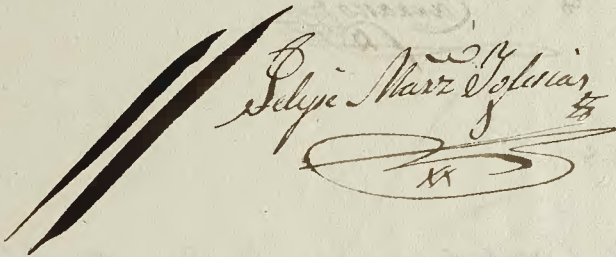 Felipe Marz Yglesias